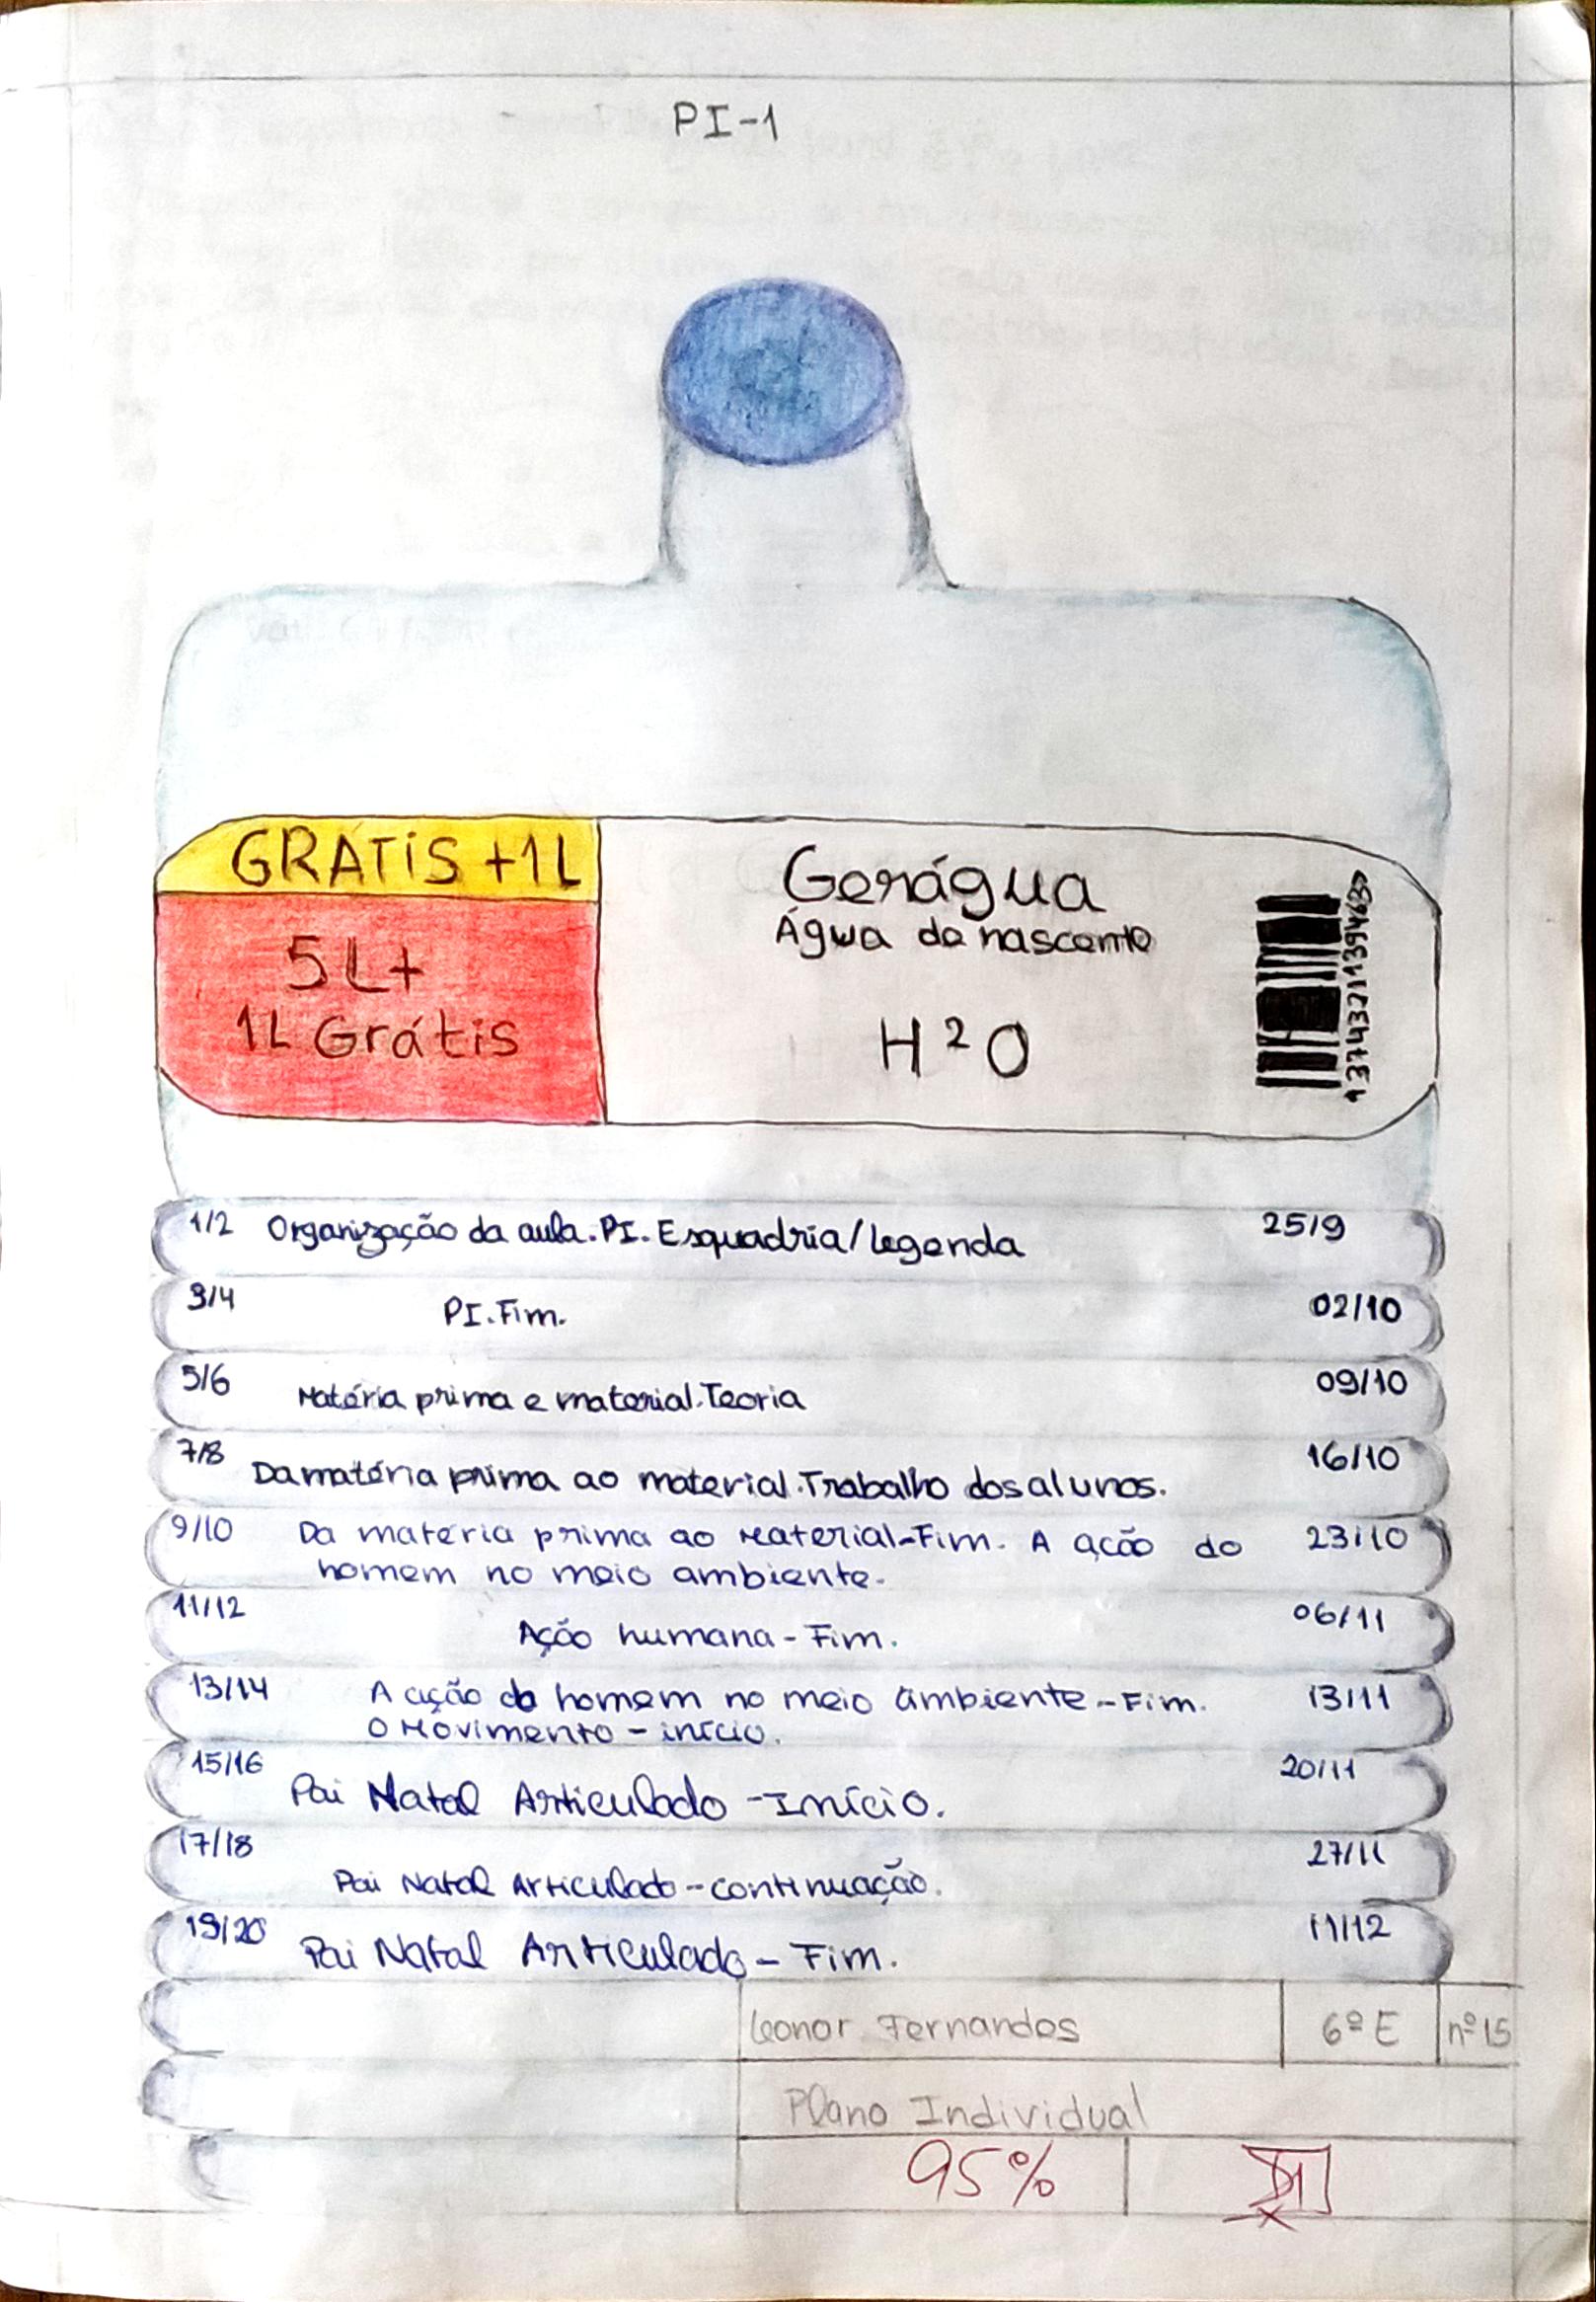 PI-1
GRATIS +1L
5L+
1L Grátis
Gerágua
Água da nascente
H²O
1374321139463>
1/2 Organização da aula. PI. Esquadria/legenda 25/9
3/4 PI. Fim. 02/10
5/6 Matéria prima e material. Teoria 09/10
7/8 Da matéria prima ao material. Trabalho dos alunos. 16/10
9/10 Da matéria prima ao Material-Fim. A ação do 23/10
homem no meio ambiente.
11/12 Ação humana - Fim. 06/11
13/14 A ação do homem no meio ambiente - Fim. 13/11
O Movimento - início.
15/16 Pai Natal Articulado - Início. 20/11
17/18 Pai Natal Articulado - continuação. 27/11
19/20 Pai Natal Articulado - Fim. 11/12
Leonor Fernandes 6º E nº 15
Plano Individual
95%